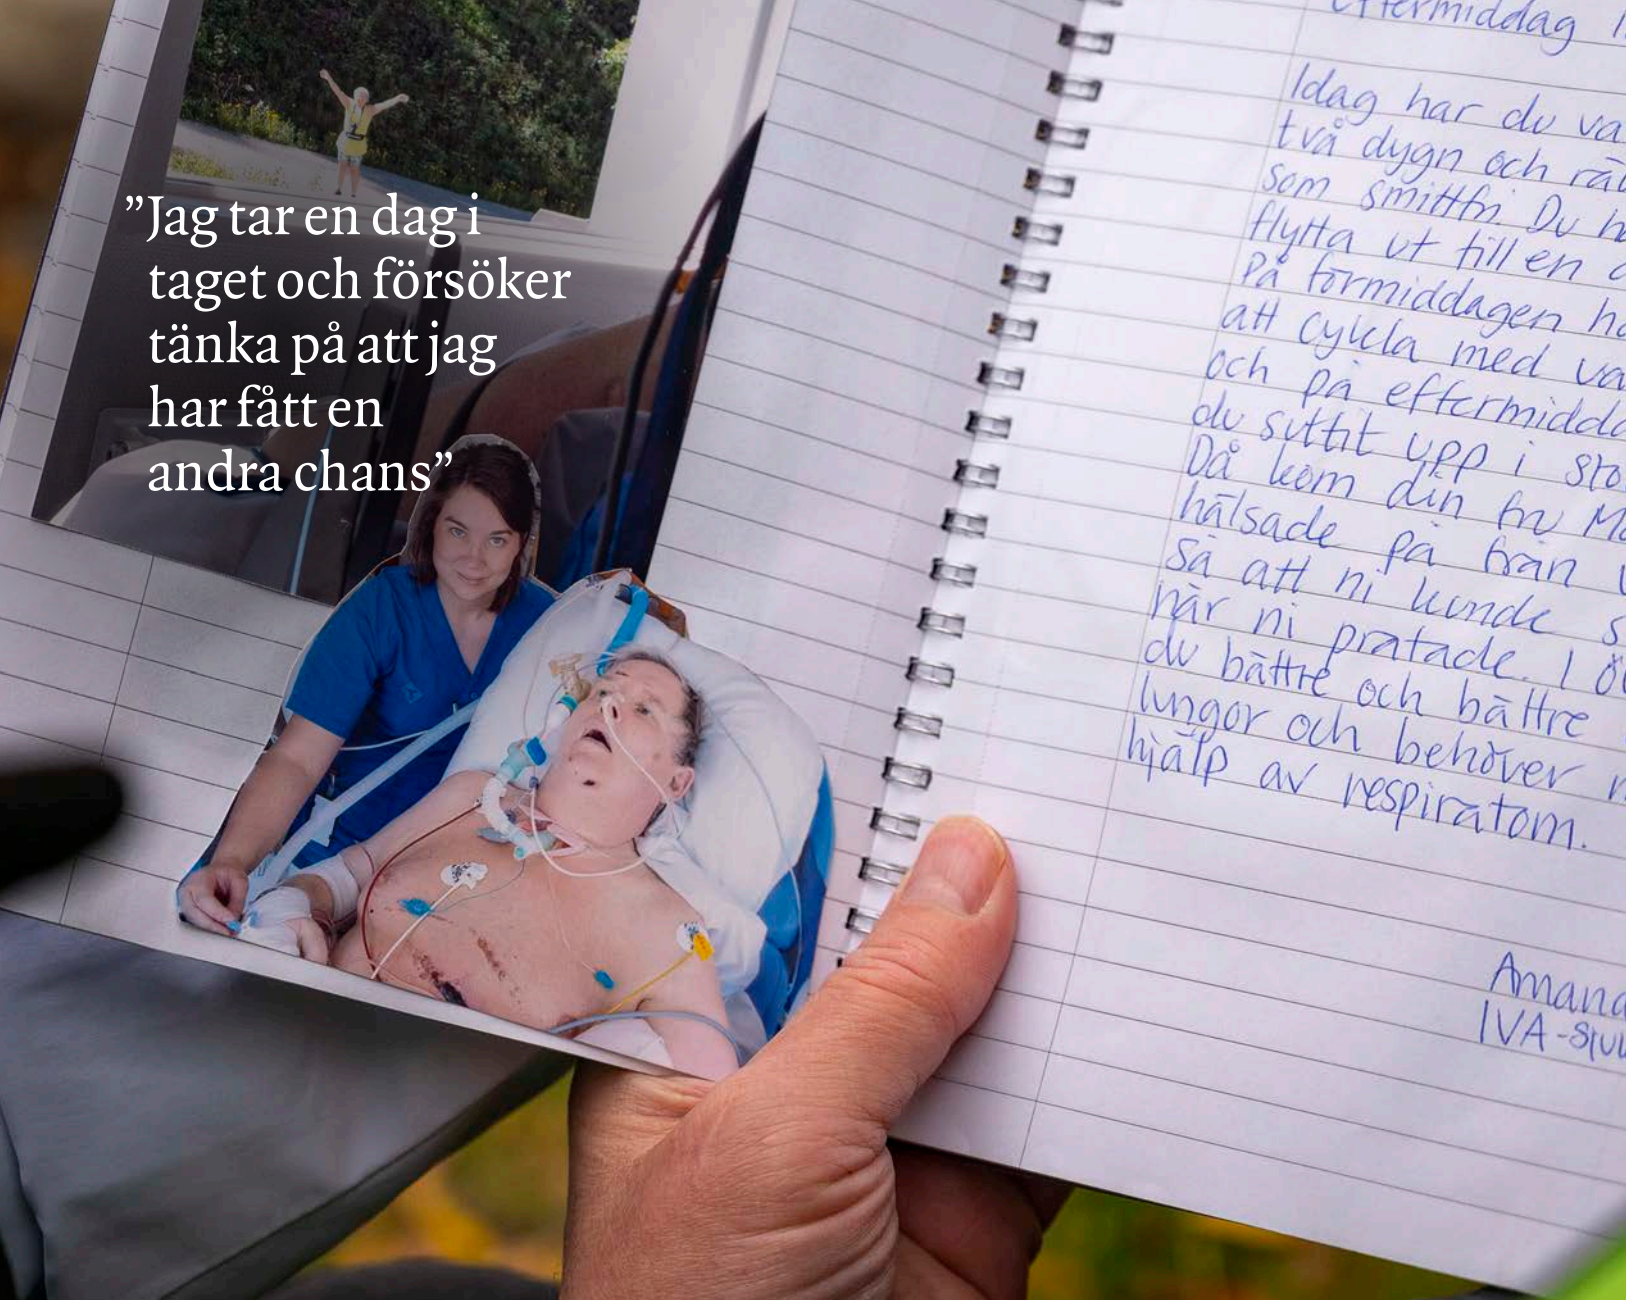 ”Jag tar en dag i
taget och försöker
tänka på att jag
har fått en
andra chans”
eftermiddag
Idag har du
två dygn och
som smittfri. Du
flytta ut till en
På förmiddagen
att cykla med
och på
du suttit upp i
Då kom din fru
hälsade på från
så att ni kunde
när ni pratade. I
du bättre och bättre
lungor och behöver
hjälp av respiratorn.
IVA-